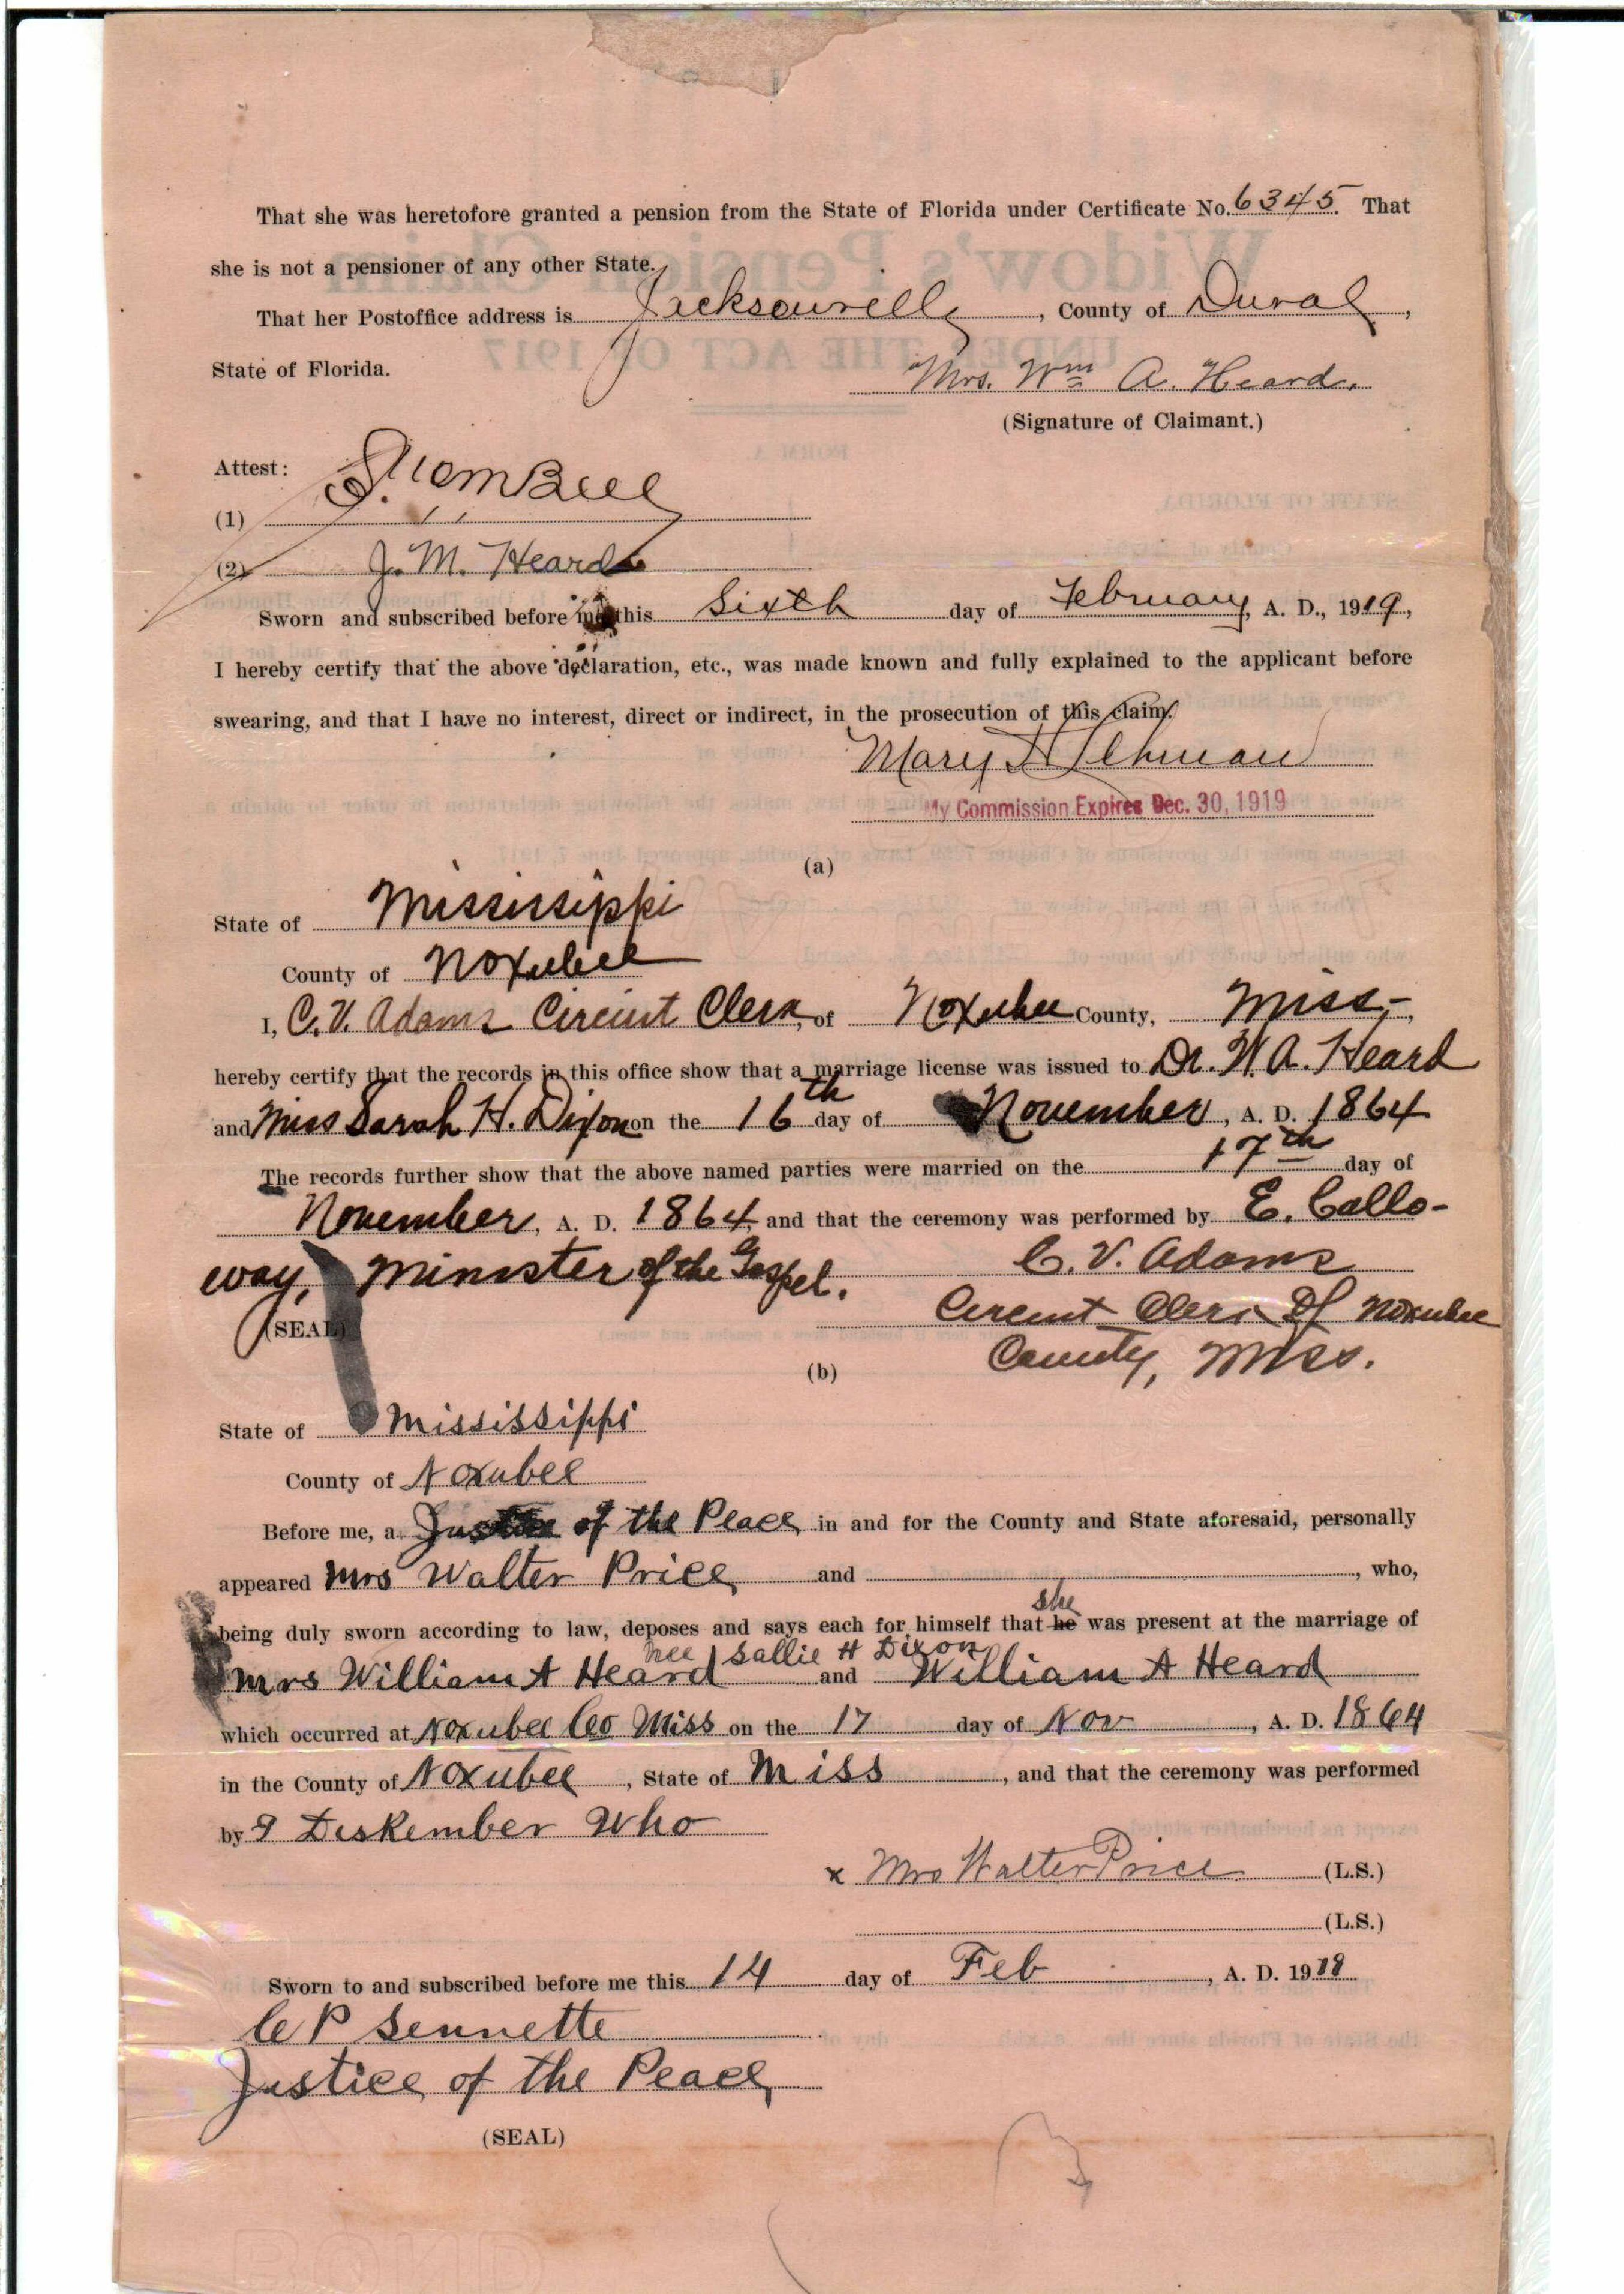 That she was heretofore granted a pension from the State of Florida under Certificate No. 6345. That
she is not a pensioner of any other State.
That her Postoffice address is Jacksonville, County of Duval,
State of Florida.
Mrs. Wm A. Heard.
(Signature of Claimant.)
Attest:
(1)
(2) J. M. Heard
Sworn and subscribed before me this Sixth day of February, A. D., 1919,
I hereby certify that the above declaration, etc., was made known and fully explained to the applicant before
swearing, and that I have no interest, direct or indirect, in the prosecution of this claim.
Mary H
My Commission Expires Dec. 30, 1919
(a)
State of Mississippi
County of Noxubee
I, C. V. Adams Circuit Clerk, of Noxubee County, Miss,
hereby certify that the records in this office show that a marriage license was issued to Dr. W. A. Heard
and Miss Sarah H. Dixon on the 16th day of November, A. D. 1864
The records further show that the above named parties were married on the 17th day of
November, A. D. 1864, and that the ceremony was performed by E. Callo-
way, Minister of the Gospel.
C. V. Adams
(SEAL)
Circuit Clerk Of Noxubee
County, Miss.
(b)
State of Mississippi
County of Noxubee
Before me, a Justice of the Peace in and for the County and State aforesaid, personally
appeared Mrs Walter Price and , who,
she
being duly sworn according to law, deposes and says each for himself that he was present at the marriage of
nee Sallie H Dixon
Mrs William A Heard and William A Heard
which occurred at Noxubee Co Miss on the 17 day of Nov , A. D. 1864
in the County of Noxubee , State of Miss , and that the ceremony was performed
by I Diskember Who
x Mrs Walter Price (L.S.)
(L.S.)
Sworn to and subscribed before me this 14 day of Feb , A. D. 1918
C P Sennette
Justice of the Peace
(SEAL)